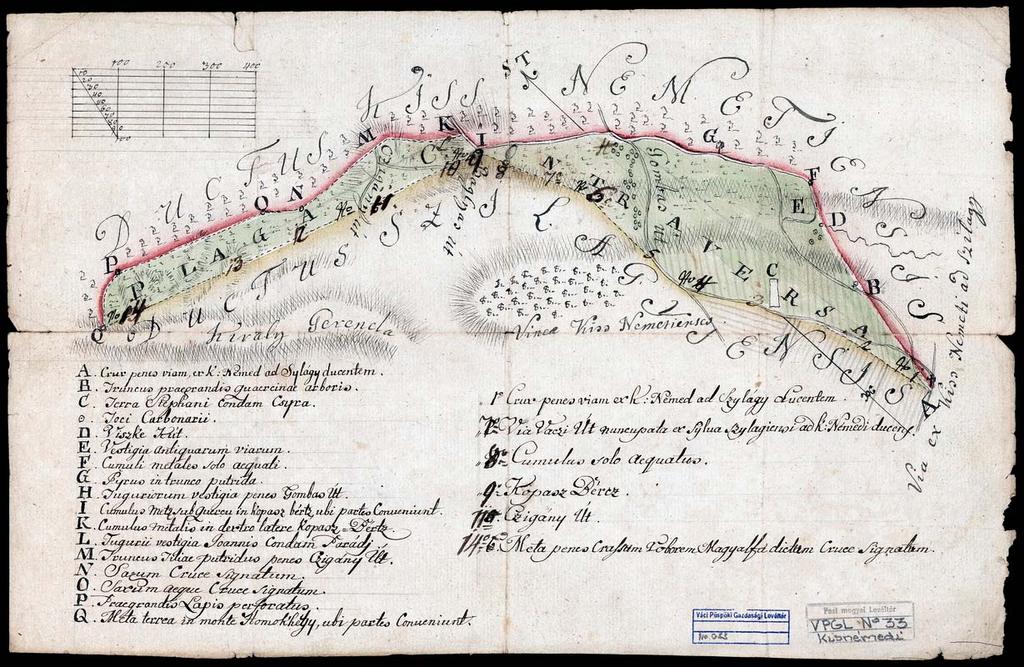 100 200 300 400
DUCTUS KISS NEMETIENSIS
PLAGA CONTRAVERSA
DUCTUS SZILAGIENSIS
Czigany ut
Baglyas ut
Gombas Ut
Kiraly Gerencla
Vinea Kiss Nemetiensis
Via ex Kiss Nemeti ad Szilagy
A. Crux penes viam, ex k: Némed ad Sylágy ducentem.
B. Truncus praegrandis quaercinae arboris.
C. Terra Stephani Condam Csyra.
o. Foci Carbonarii.
D. Viszke Kút.
E. Vestigia Antiquarum viarum.
F. Cumuli metales solo aequati.
G. Pyrus in trunco putrida.
H. Tuguriorum vestigia penes Gombas Ut.
I. Cumulus Met; sub quercu in kopasz bértz, ubi partes Conveniunt.
K. Cumulus metalis in dextro latere kopasz Bértz.
L. Tugurii vestigia Joannis Condam Farádi.
M. Truncus Tiliae putridus penes Czigány Ut.
N. Saxum Cruce Signatum.
O. Saxum aeque Cruce Signatum.
P. Praegrandis Lapis perforatus.
Q. Meta terrea in monte Homokhegy, ubi partes Conveniunt.
1º Crux penes viam ex k: Némed ad Szylágy ducentem.
7º Via Váczi Út nuncupata ex Sylva Szylagiensi ad k: Némedi ducens.
8º Cumulus solo aequatus.
9º Kopasz Bércz.
11º Czigány Út.
14º Meta penes Crassum Roborem Magyalfa dictum Cruce Signatum.
Váci Püspöki Gazdasági Levéltár
No. 033
Pest megyei Levéltár
VPGL Nº 33
Kisnémedi